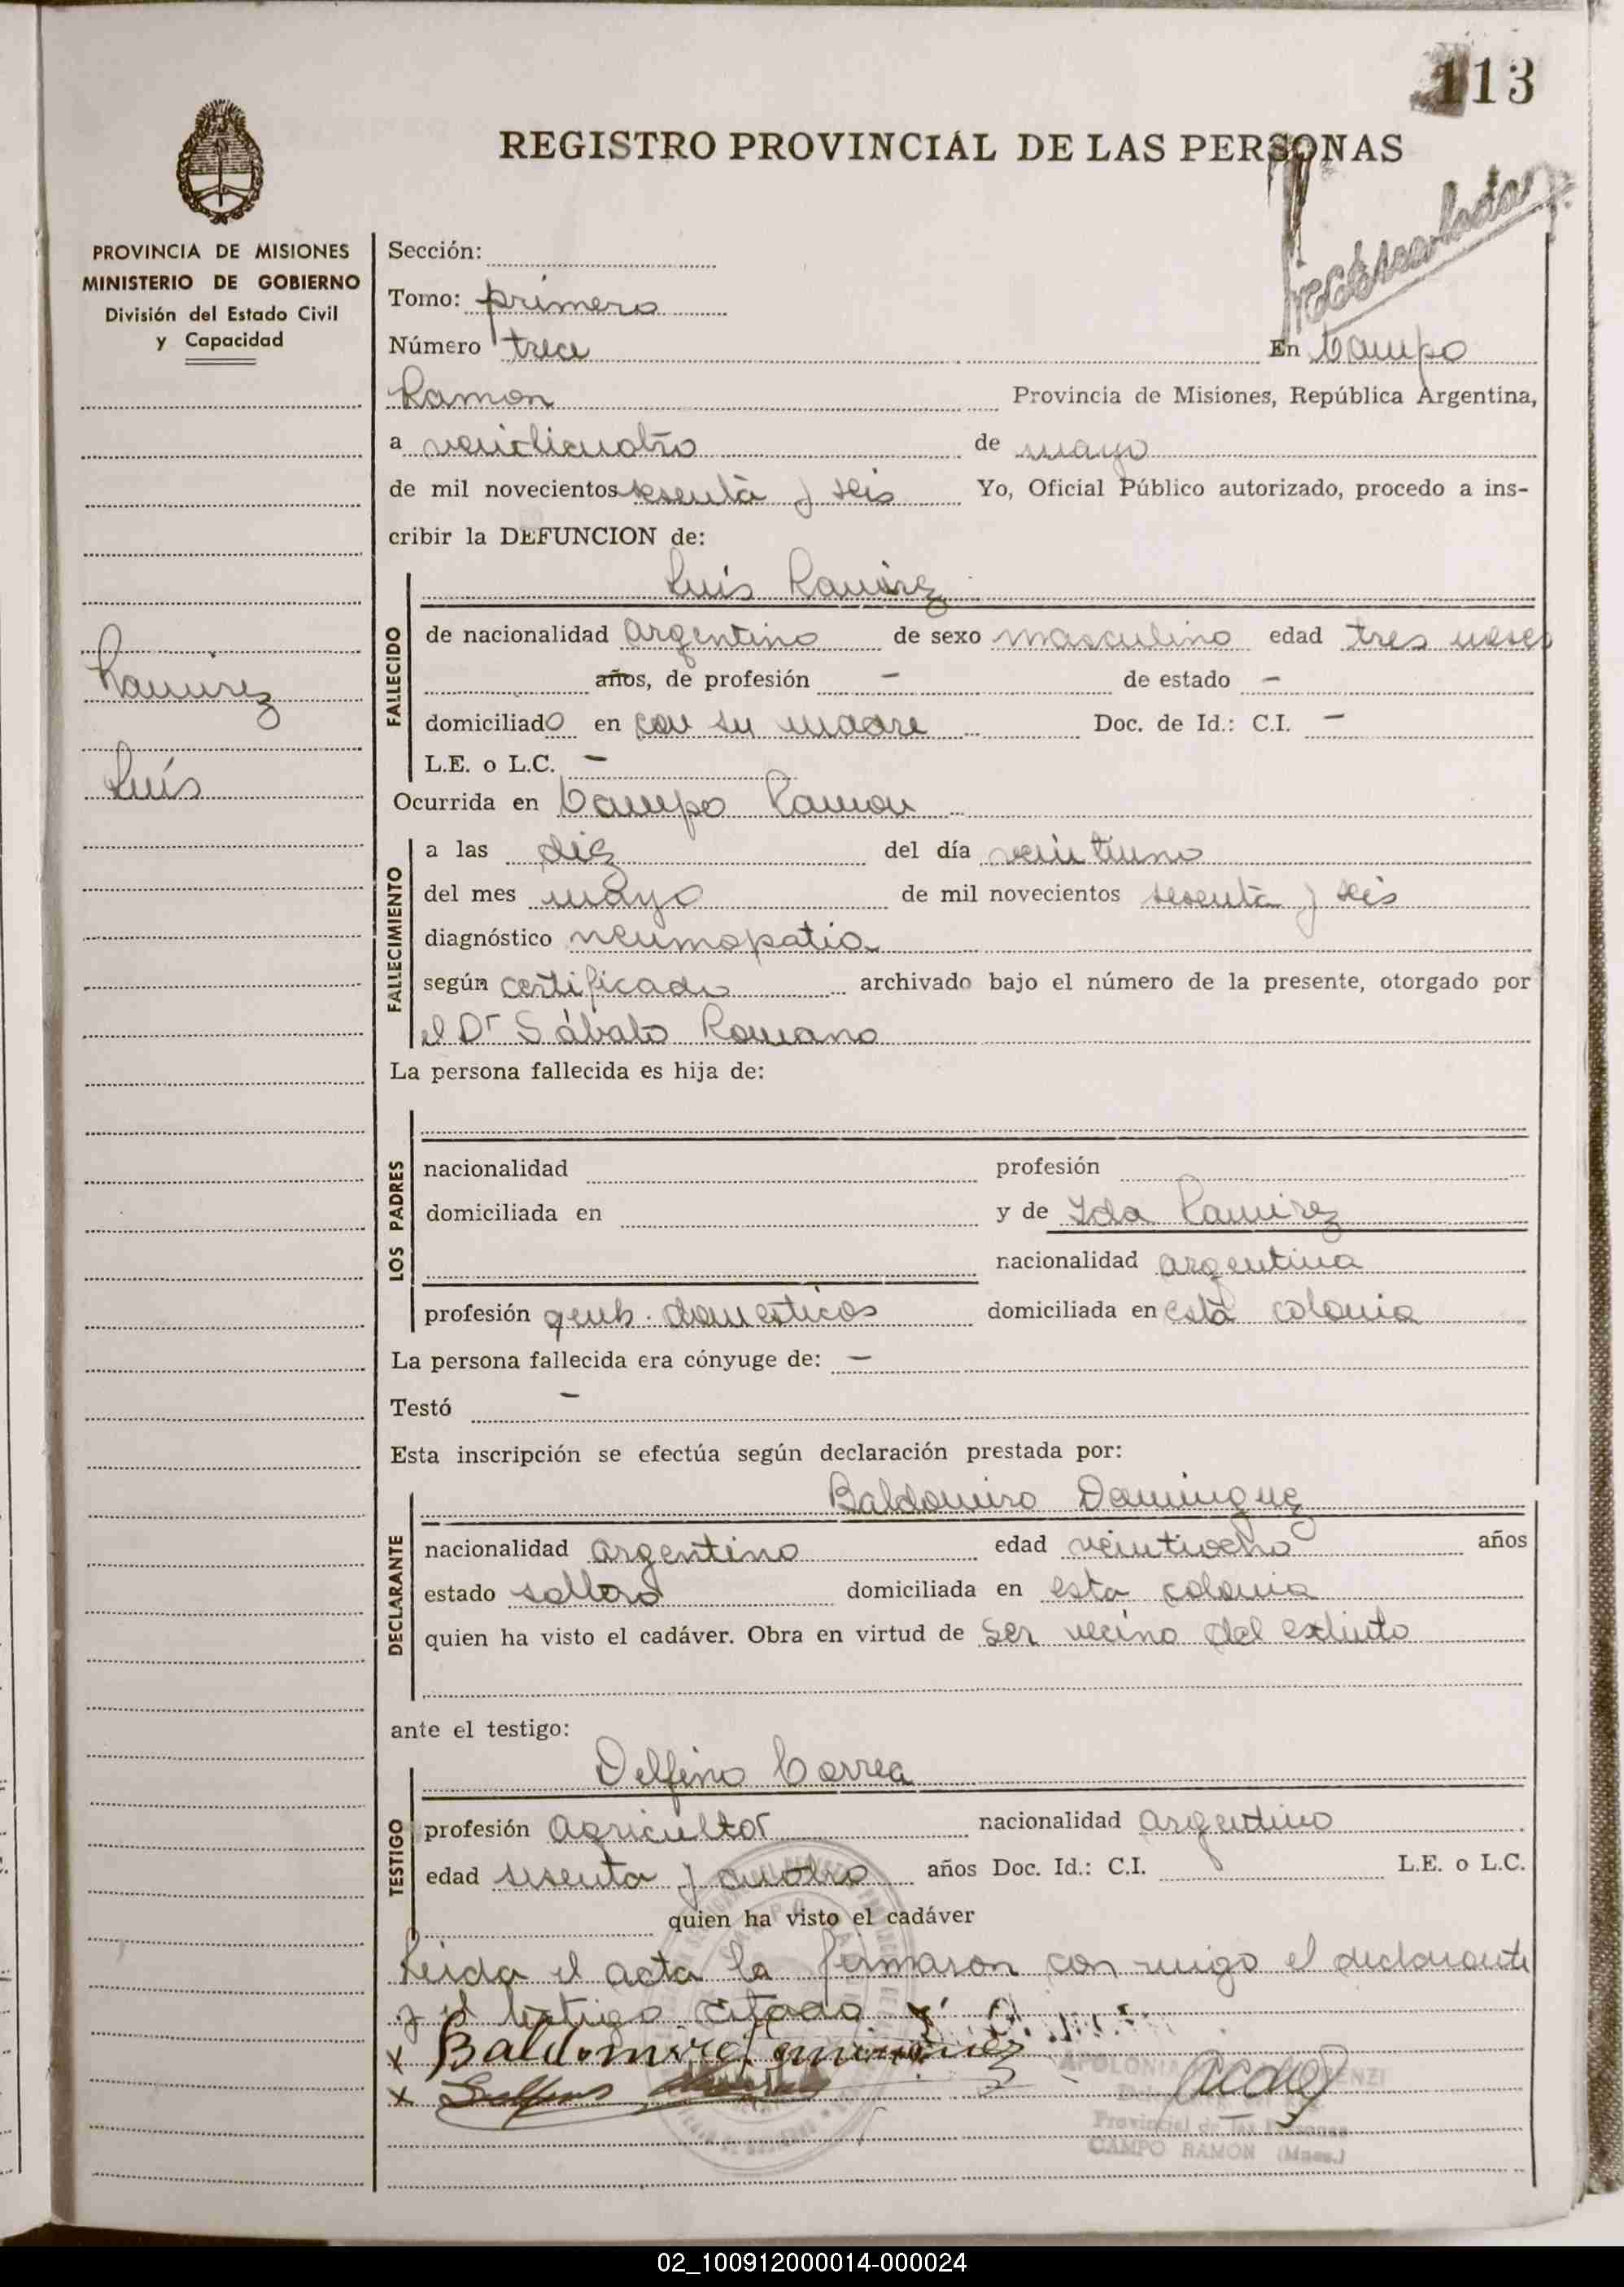 113
REGISTRO PROVINCIAL DE LAS PERSONAS
PROVINCIA DE MISIONES
MINISTERIO DE GOBIERNO
División del Estado Civil
y Capacidad
Ramirez
Luís
Sección:
Tomo: primero
Número trece En Campo
Ramon Provincia de Misiones, República Argentina,
a veinticuatro de mayo
de mil novecientos sesenta y seis Yo, Oficial Público autorizado, procedo a ins-
cribir la DEFUNCION de:
Luis Ramirez
FALLECIDO
de nacionalidad argentino de sexo masculino edad tres meses
años, de profesión - de estado -
domiciliado en con su madre Doc. de Id.: C.I. -
L.E. o L.C. -
Ocurrida en Campo Ramon
FALLECIMIENTO
a las diez del día veintiuno
del mes mayo de mil novecientos sesenta y seis
diagnóstico neumopatia
según certificado archivado bajo el número de la presente, otorgado por
el Dr Sábato Romano
La persona fallecida es hija de:
LOS PADRES
nacionalidad profesión
domiciliada en y de Ida Ramirez
nacionalidad argentina
profesión domesticos domiciliada en esta colonia
La persona fallecida era cónyuge de: -
Testó -
Esta inscripción se efectúa según declaración prestada por:
Baldomiro Dominguez
DECLARANTE
nacionalidad argentino edad veintiocho años
estado soltero domiciliada en esta colonia
quien ha visto el cadáver. Obra en virtud de ser vecino del extinto
ante el testigo:
Delfino Correa
TESTIGO
profesión agricultor nacionalidad argentino
edad sesenta y cuatro años Doc. Id.: C.I. L.E. o L.C.
quien ha visto el cadáver
Leida el acta la firmaron con migo el declarante
y el testigo citado
x Baldomiro
x
APOLONIA
Provincial de las Personas
CAMPO RAMON (Mnes.)
02_100912000014-000024